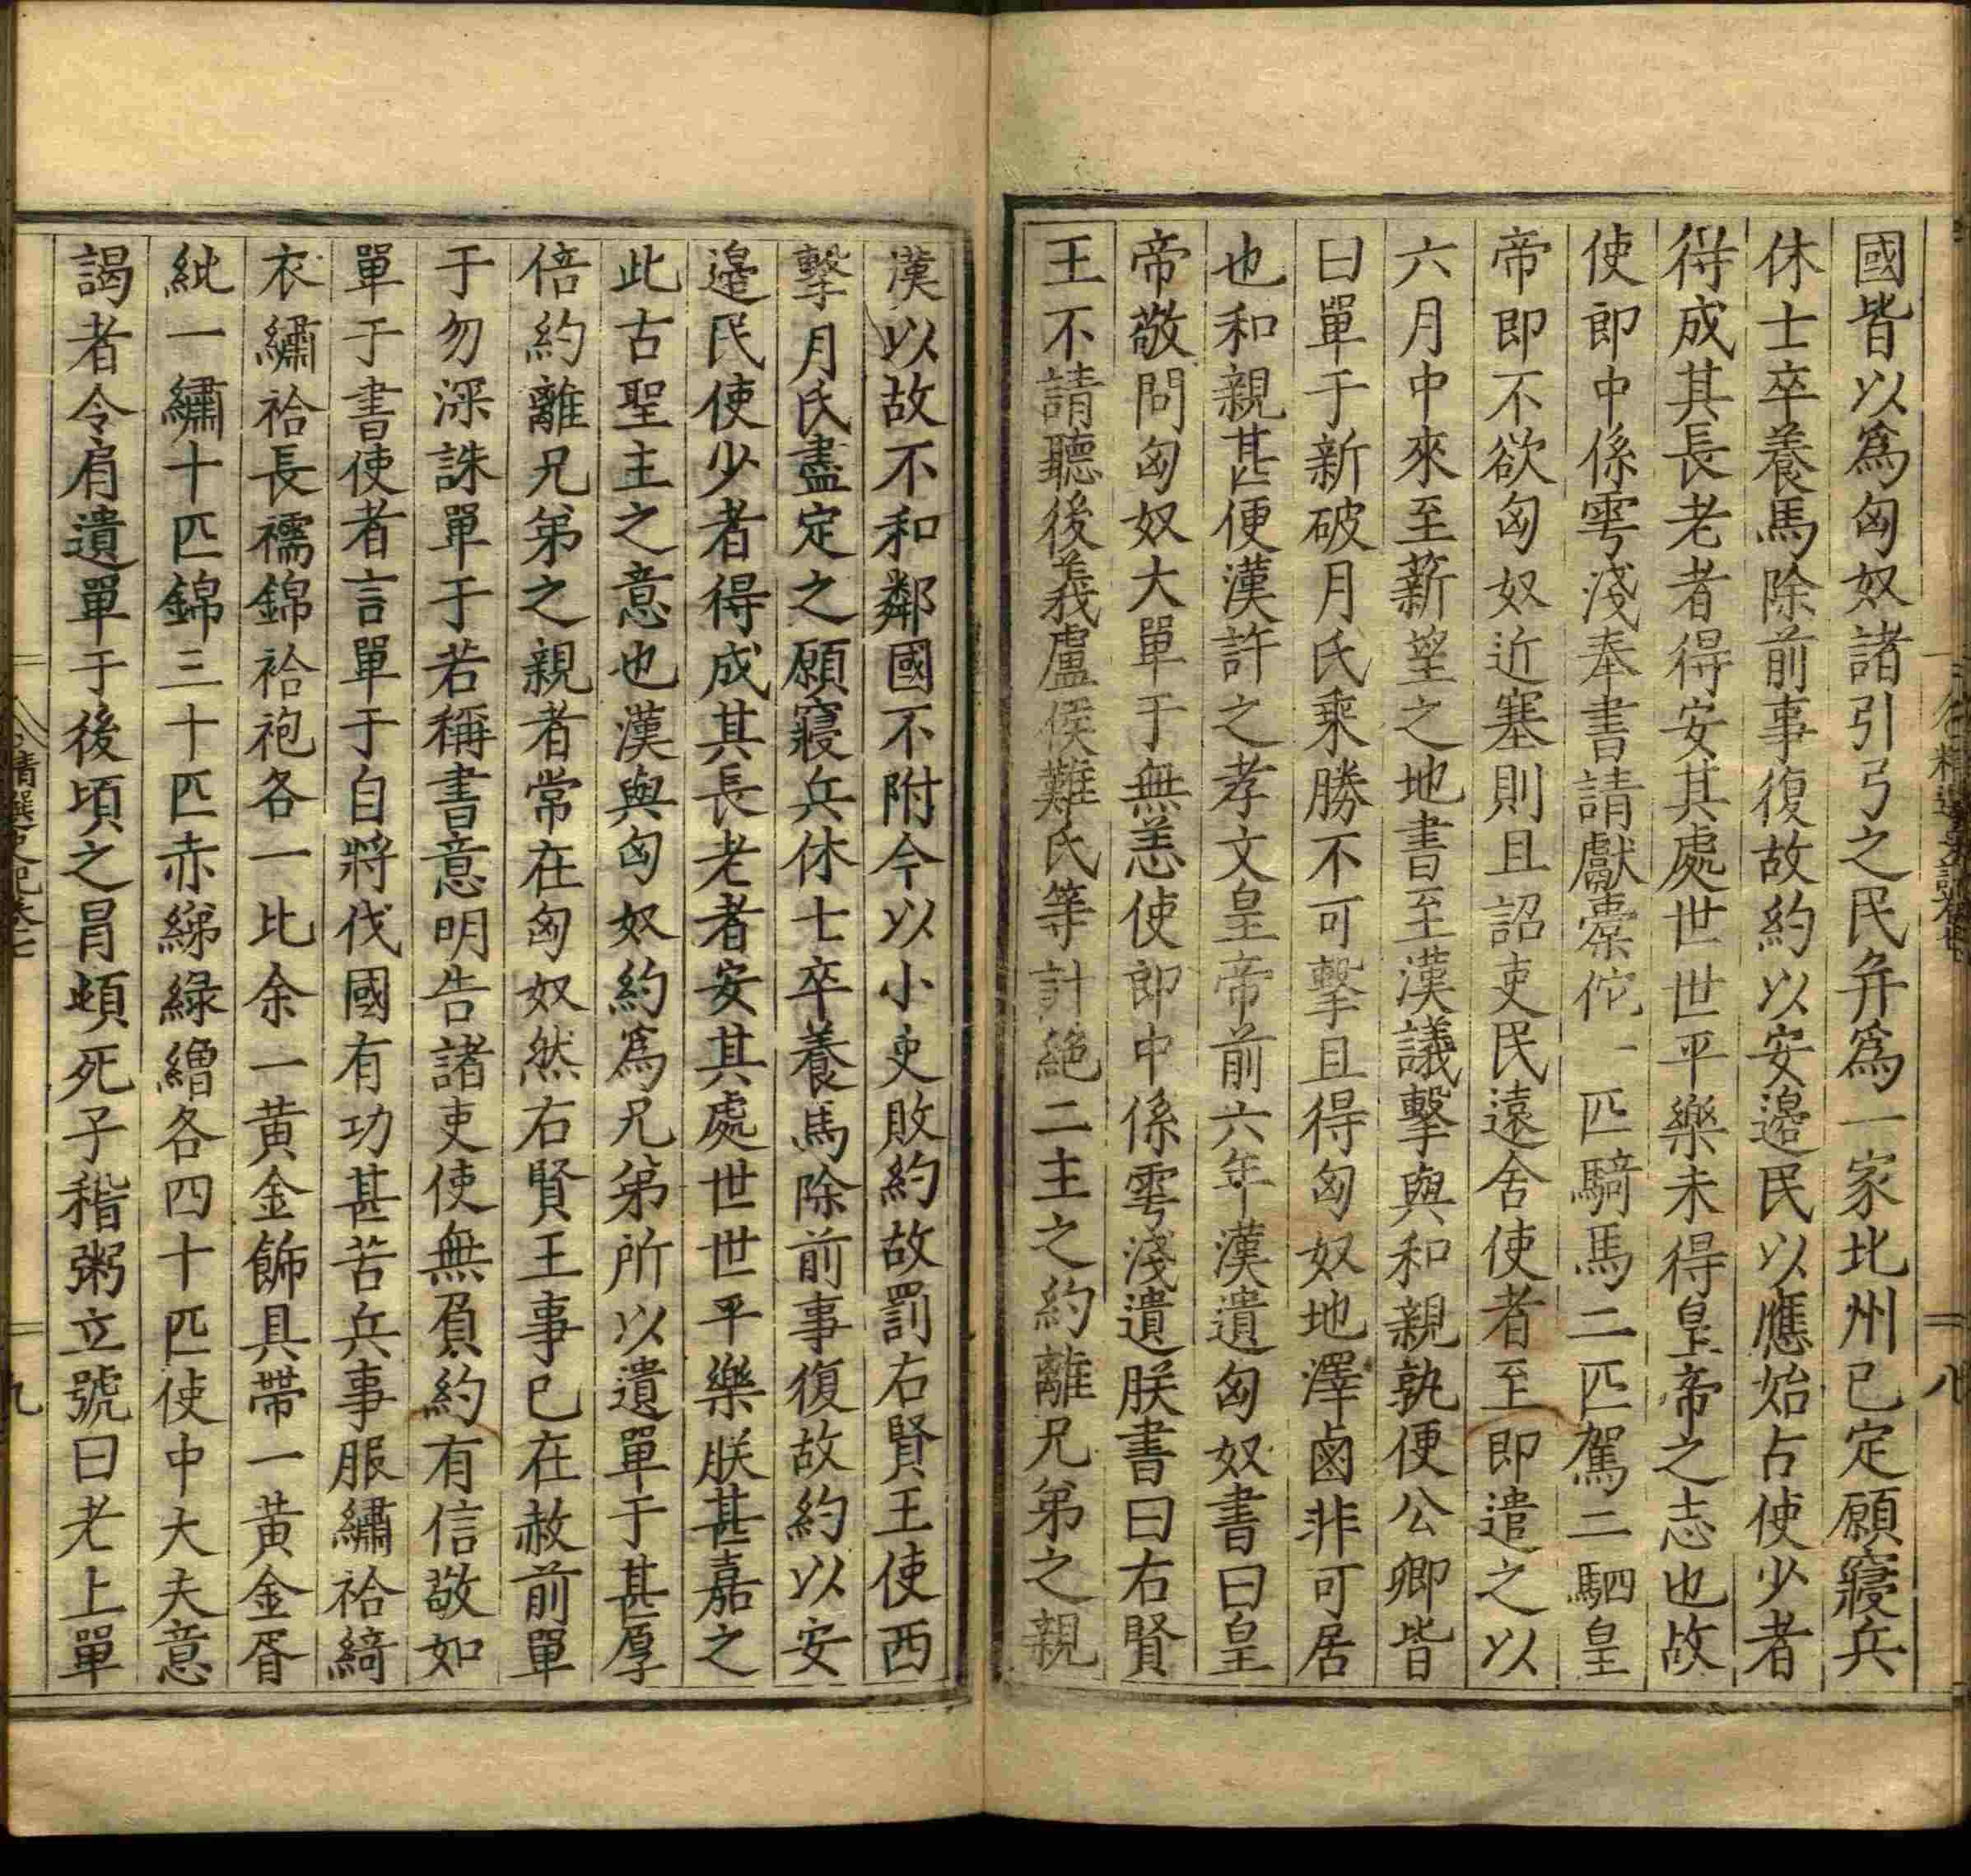 國皆以爲匈奴諸引弓之民弁爲一家北州已定願寢兵
休士卒養馬除前事復故約以安邉民以應始占使少者
得成其長老者得安其處世世平樂未得皇帝之志也故
使郎中係雩淺奉書請獻橐佗一匹騎馬二匹駕二駟皇
帝即不欲匈奴近塞則且詔吏民遠舍使者至即遣之以
六月中來至薪望之地書至漢議擊與和親孰便公卿皆
曰單于新破月氏乘勝不可擊且得匈奴地澤鹵非可居
也和親甚便漢許之孝文皇帝前六年漢遺匈奴書曰皇
帝敬問匈奴大單于無恙使郎中係雩淺遺朕書曰右賢
王不請聽後義盧侯難氏等計絶二主之約離兄弟之親
八
漢以故不和鄰國不附今以小吏敗約故罰右賢王使西
擊月氏盡定之願寢兵休士卒養馬除前事復故約以安
邉民使少者得成其長老者安其處世世平樂朕甚嘉之
此古聖主之意也漢與匈奴約爲兄弟所以遺單于甚厚
倍約離兄弟之親者常在匈奴然右賢王事已在赦前單
于勿深誅單于若稱書意明告諸吏使無負約有信敬如
單于書使者言單于自將伐國有功甚苦兵事服繡袷綺
衣繡袷長襦錦袷袍各一比余一黄金飾具帶一黄金胥
紕一繡十匹錦三十匹赤綈緑繒各四十匹使中大夫意
謁者令肩遺單于後頃之冒頓死子稽粥立號曰老上單
九